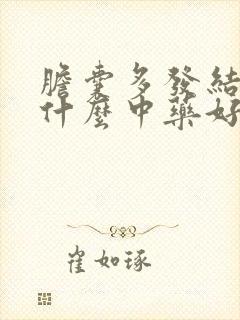 膽囊多發結
什麼中藥好
崔如琢